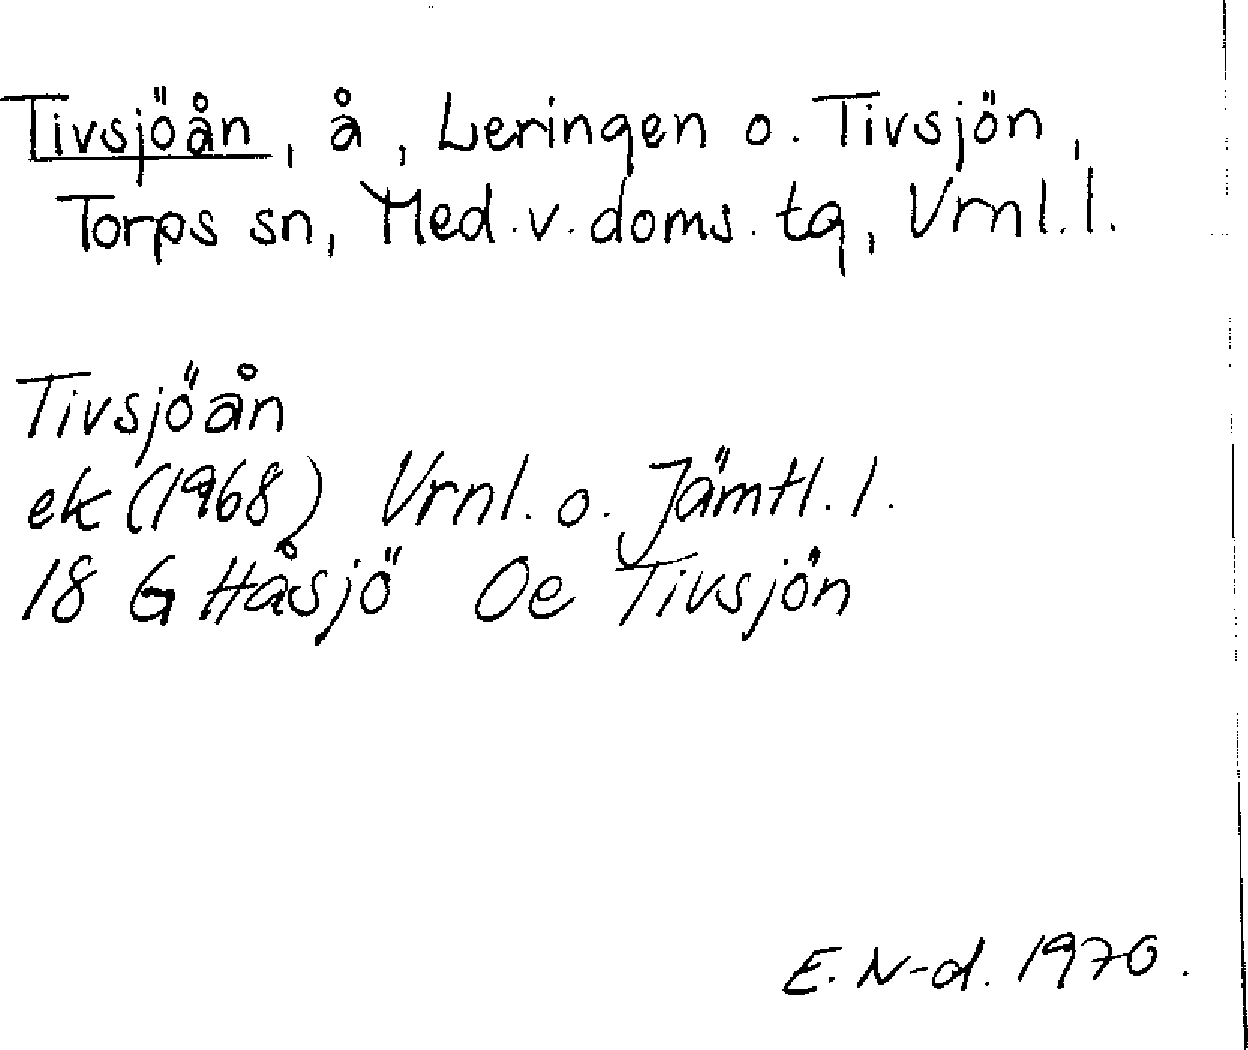 Tivsjöån, å, Leringen o. Tivsjön,
Torps sn, Med.v.doms.tg, Vrnl.l.
Tivsjöån
ek (1968) Vrnl. o. Jämtl. l.
18 G Håsjö Oe Tivsjön
E. N-d. 1970.